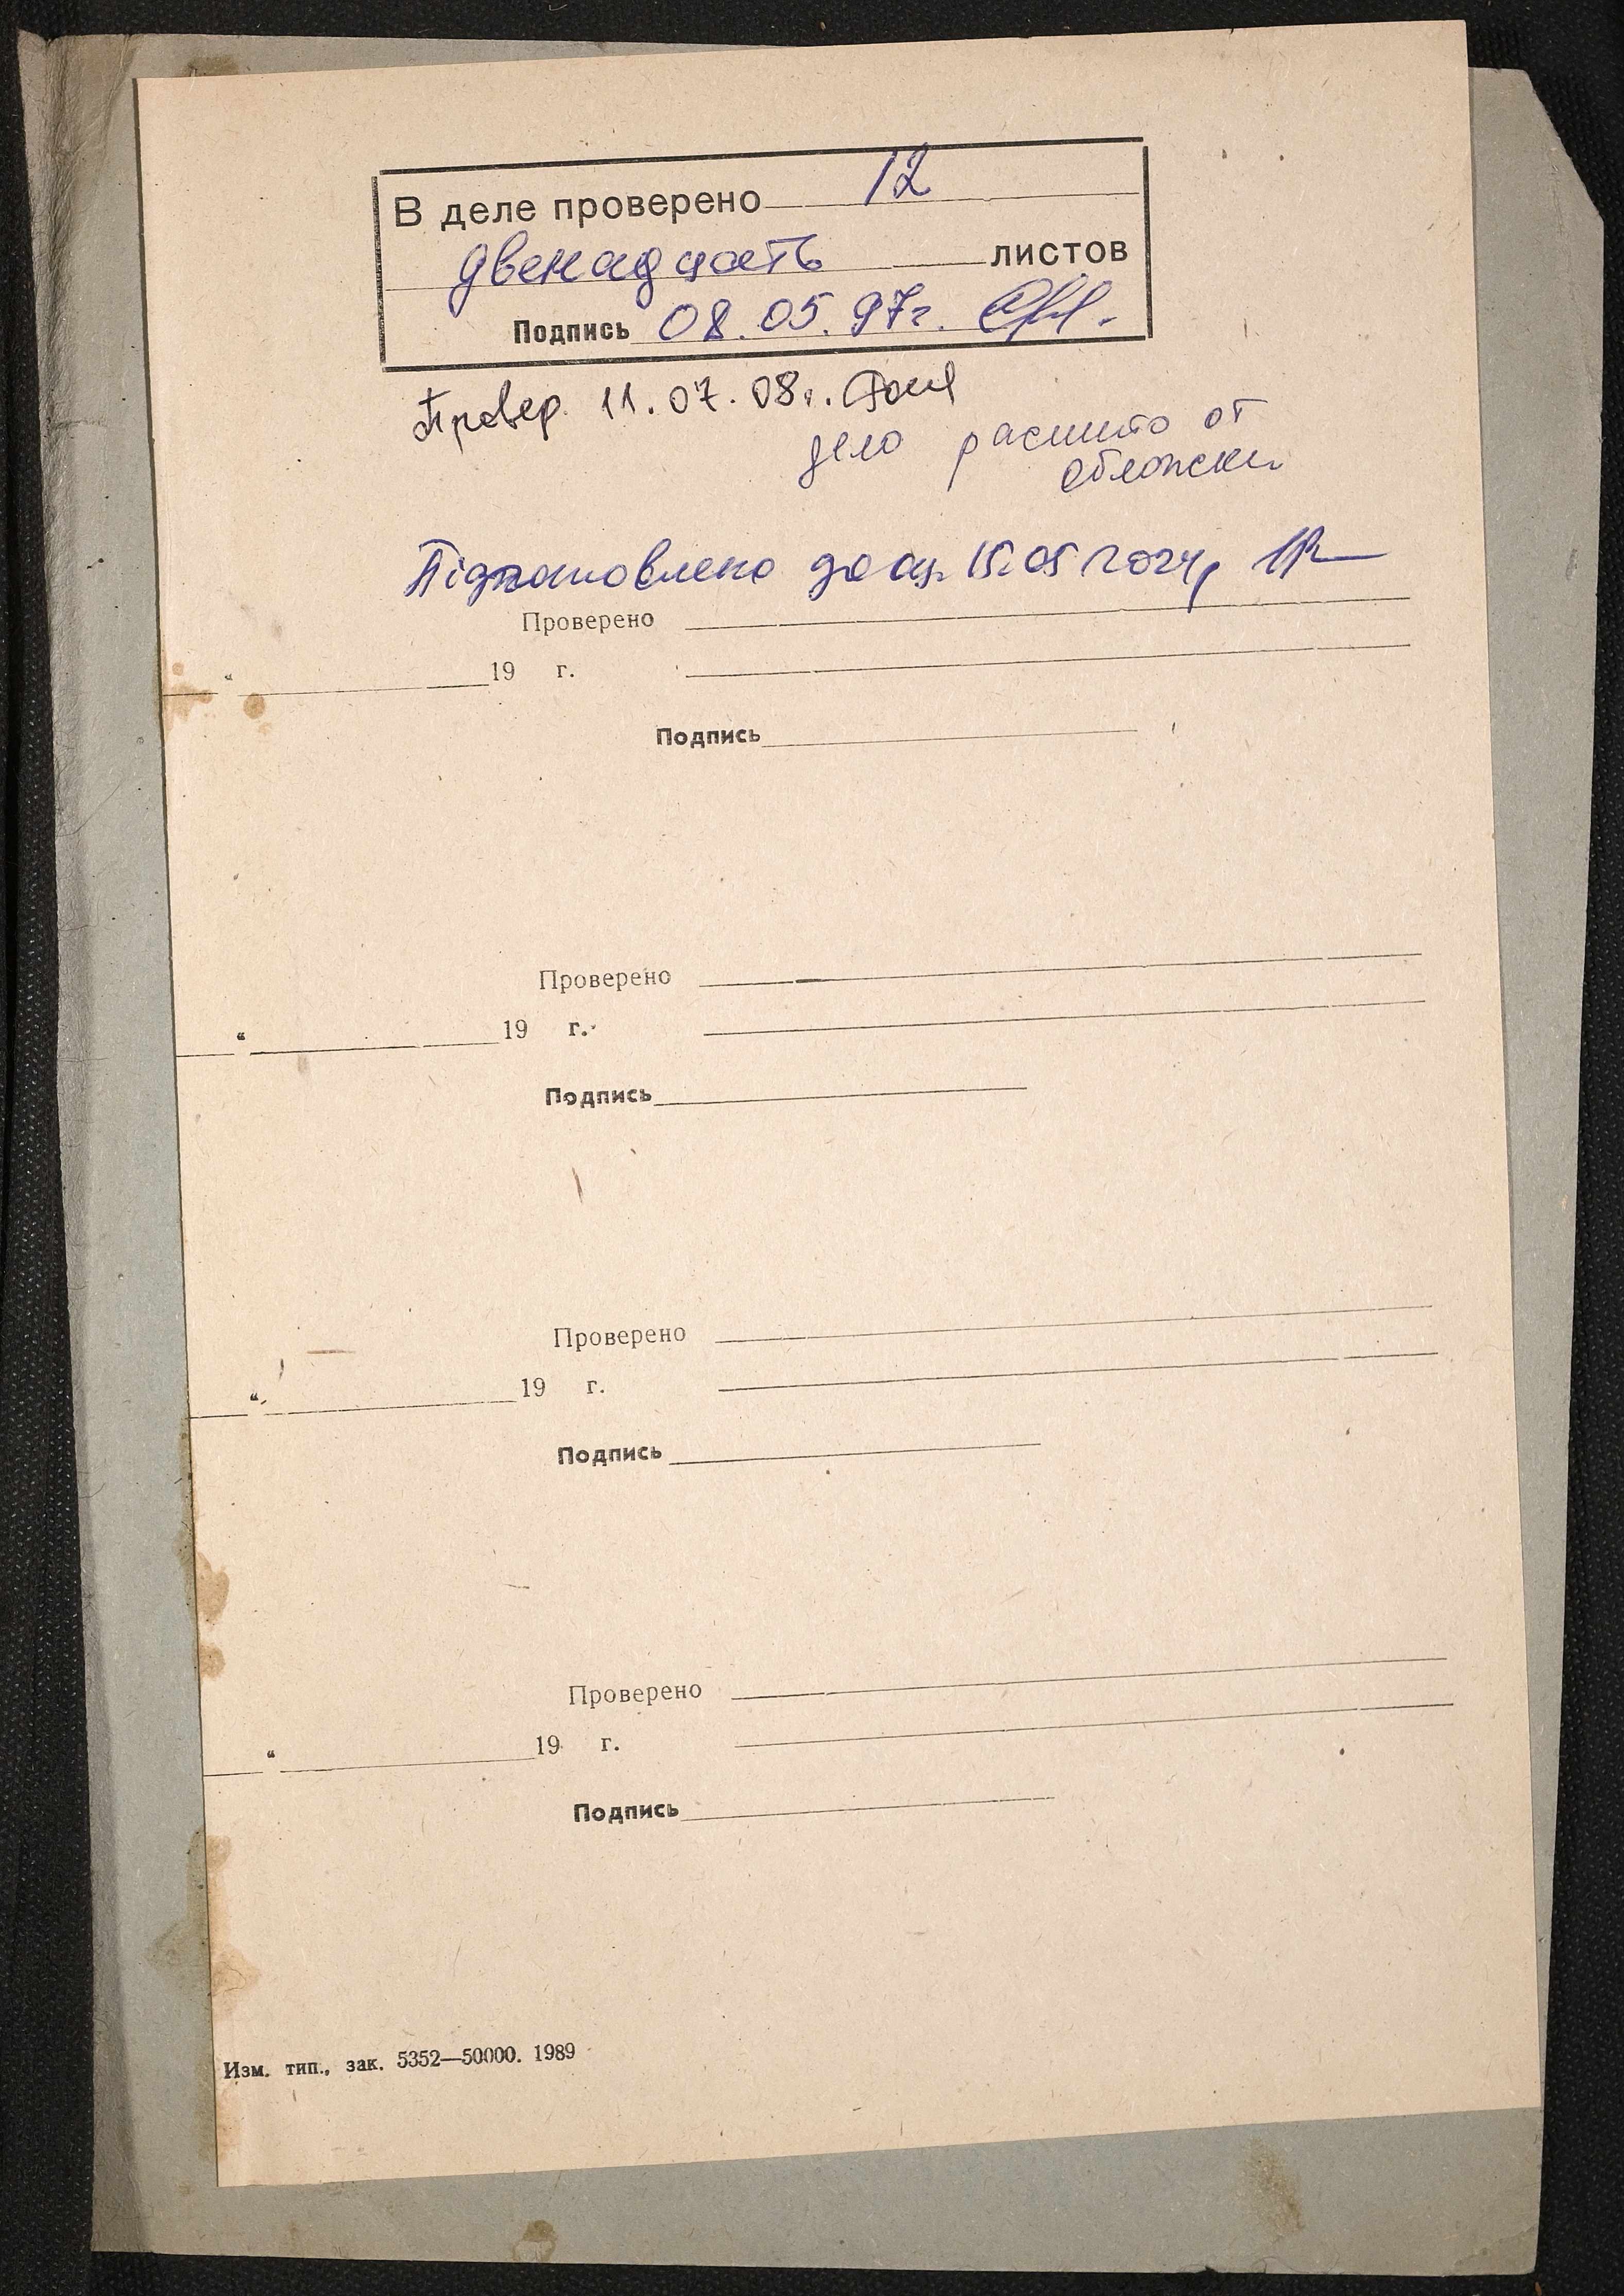 В деле проверено 12
двенадцать листов
Подпись 08.05.97г.
Провер. 11.07.08г.
дело расшито от
обложки
15.05.2024р
Проверено
" 19 г.
Подпись
Проверено
" 19 г.
Подпись
Проверено
" 19 г.
Подпись
Проверено
" 19 г.
Подпись
Изм. тип., зак. 5352—50000. 1989